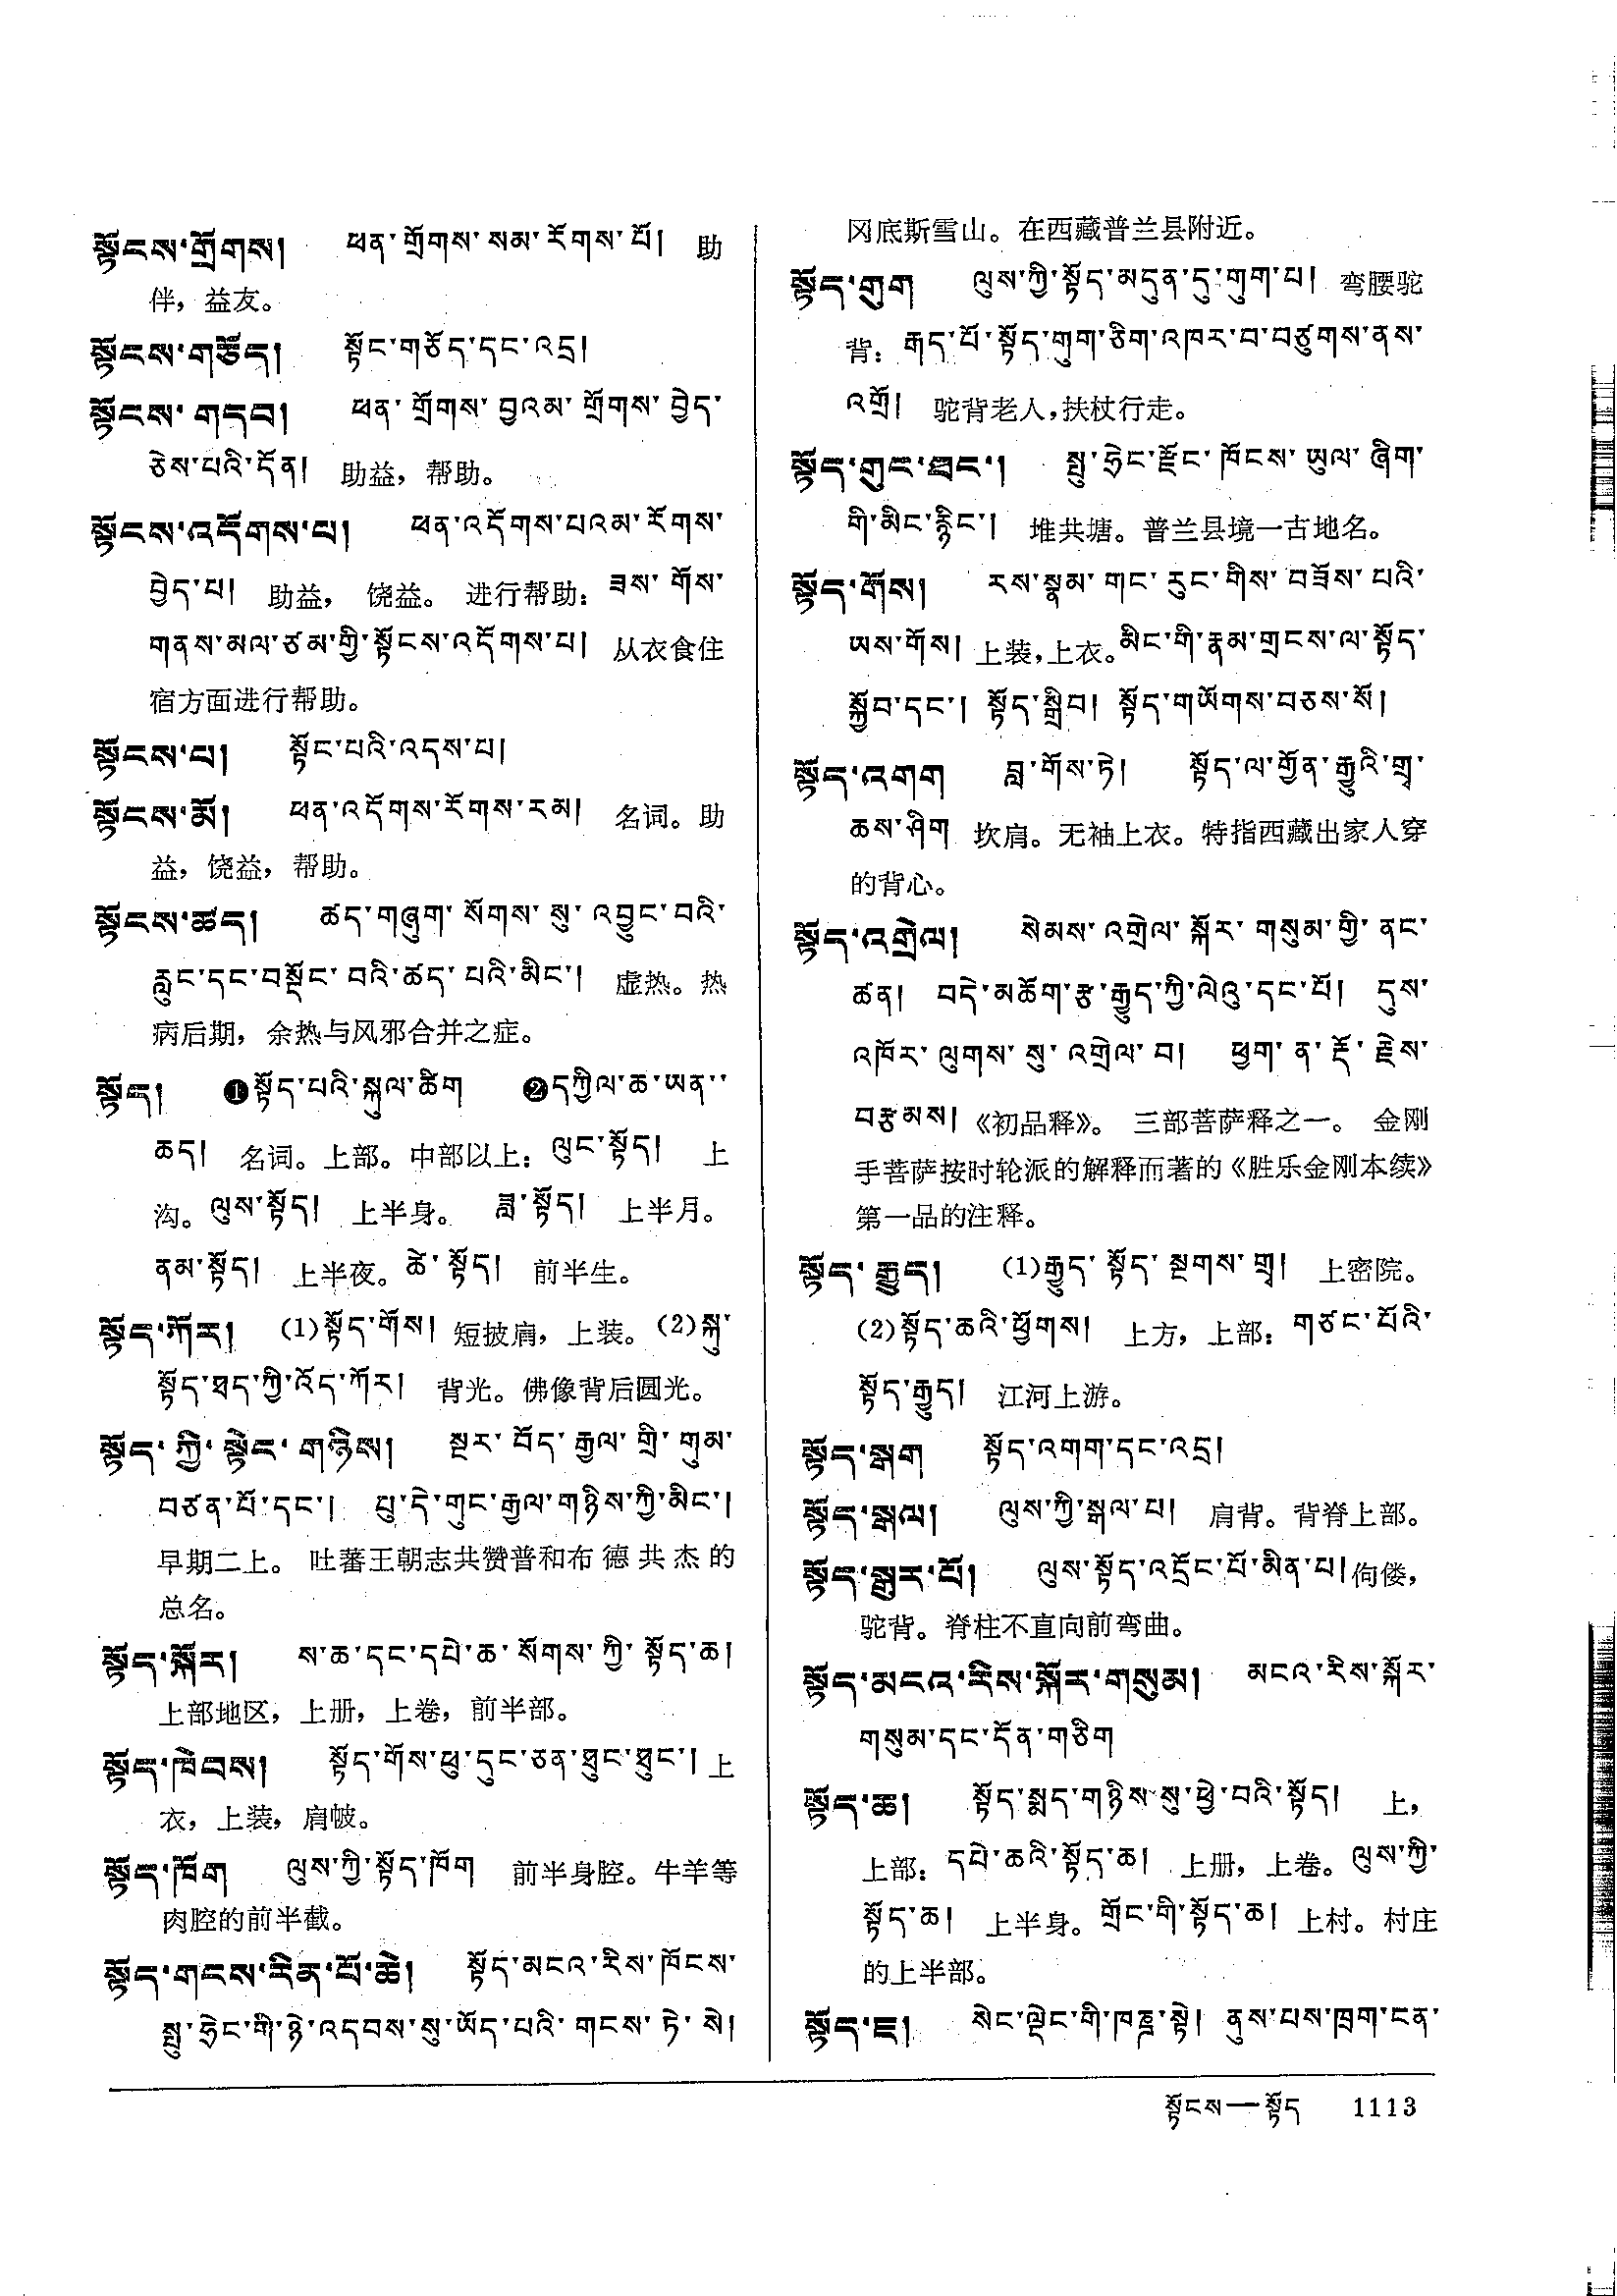 སྟོངས་གྲོགས། ཕན་གྲོགས་སམ་རོགས་པོ། 助
伴，益友。
སྟོངས་གཅོད། སྟོང་གཅོད་དང་འདྲ།
སྟོངས་གདབ། ཕན་གྲོགས་བྱའམ་གྲོགས་བྱེད་
ཅེས་པའི་དོན། 助益，帮助。
སྟོངས་འདོགས་པ། ཕན་འདོགས་པའམ་རོགས་
བྱེད་པ། 助益， 饶益。 进行帮助：ཟས་གོས་
གནས་མལ་ཙམ་གྱི་སྟོངས་འདོགས་པ། 从衣食住
宿方面进行帮助。
སྟོངས་པ། སྟོང་པའི་འདས་པ།
སྟོངས་མོ། ཕན་འདོགས་རོགས་རམ། 名词。助
益，饶益，帮助。
སྟོངས་ཚད། ཚད་གཞུག་སོགས་སུ་འབྱུང་བའི་
རླུང་དང་བསྡོང་བའི་ཚད་པའི་མིང་། 虚热。热
病后期，余热与风邪合并之症。
སྟོད། ❶སྟོད་པའི་སྐུལ་ཚིག ❷དཀྱིལ་ཆ་ཡན་
ཆད། 名词。上部。中部以上：ལུང་སྟོད། 上
沟。ལུས་སྟོད། 上半身。 ཟླ་སྟོད། 上半月。
ནམ་སྟོད། 上半夜。ཚེ་སྟོད། 前半生。
སྟོད་ཀོར། (1)སྟོད་གོས། 短披肩，上装。(2)སྐུ་
སྟོད་ཐད་ཀྱི་འོད་ཀོར། 背光。佛像背后圆光。
སྟོད་ཀྱི་སྟེང་གཉིས། སྔར་བོད་རྒྱལ་གྲི་གུམ་
བཙན་པོ་དང་། པུ་དེ་གུང་རྒྱལ་གཉིས་ཀྱི་མིང་།
早期二上。 吐蕃王朝志共赞普和布德共杰的
总名。
སྟོད་སྐོར། ས་ཆ་དང་དཔེ་ཆ་སོགས་ཀྱི་སྟོད་ཆ།
上部地区，上册，上卷，前半部。
སྟོད་ཁེབས། སྟོད་གོས་ཕུ་དུང་ཅན་ཐུང་ཐུང་། 上
衣，上装，肩帔。
སྟོད་ཁོག ལུས་ཀྱི་སྟོད་ཁོག 前半身腔。牛羊等
肉腔的前半截。
སྟོད་གངས་རིན་པོ་ཆེ། སྟོད་མངའ་རིས་ཁོངས་
སྤུ་ཧྲེང་གི་ཉེ་འདབས་སུ་ཡོད་པའི་གངས་ཏེ་སེ།
冈底斯雪山。在西藏普兰县附近。
སྟོད་གུག ལུས་ཀྱི་སྟོད་མདུན་དུ་གུག་པ། 弯腰驼
背：རྒད་པོ་སྟོད་གུག་ཅིག་འཁར་བ་བཙུགས་ནས་
འགྲོ། 驼背老人，扶杖行走。
སྟོད་གུང་ཐང་། སྤུ་ཧྲེང་རྫོང་ཁོངས་ཡུལ་ཞིག་
གི་མིང་རྙིང་། 堆共塘。普兰县境一古地名。
སྟོད་གོས། རས་སྣམ་གང་རུང་གིས་བཟོས་པའི་
ཡས་གོས། 上装，上衣。མིང་གི་རྣམ་གྲངས་ལ་སྟོད་
སྐྱོབ་དང་། སྟོད་སྒྲིབ། སྟོད་གཡོགས་བཅས་སོ།
སྟོད་འགག བླ་གོས་ཏེ། སྟོད་ལ་གྱོན་རྒྱུའི་གྲྭ་
ཆས་ཤིག 坎肩。无袖上衣。特指西藏出家人穿
的背心。
སྟོད་འགྲེལ། སེམས་འགྲེལ་སྐོར་གསུམ་གྱི་ནང་
ཚན། བདེ་མཆོག་རྩ་རྒྱུད་ཀྱི་ལེའུ་དང་པོ། དུས་
འཁོར་ལུགས་སུ་འགྲེལ་བ། ཕྱག་ན་རྡོ་རྗེས་
བརྩམས། 《初品释》。 三部菩萨释之一。 金刚
手菩萨按时轮派的解释而著的《胜乐金刚本续》
第一品的注释。
སྟོད་རྒྱུད། (1)རྒྱུད་སྟོད་སྔགས་གྲྭ། 上密院。
(2)སྟོད་ཆའི་ཕྱོགས། 上方，上部：གཙང་པོའི་
སྟོད་རྒྱུད། 江河上游。
སྟོད་སྒག སྟོད་འགག་དང་འདྲ།
སྟོད་སྒལ། ལུས་ཀྱི་སྒལ་པ། 肩背。背脊上部。
སྟོད་སྒུར་པོ། ལུས་སྟོད་འདྲོང་པོ་མིན་པ། 佝偻，
驼背。脊柱不直向前弯曲。
སྟོད་མངའ་རིས་སྐོར་གསུམ། མངའ་རིས་སྐོར་
གསུམ་དང་དོན་གཅིག
སྟོད་ཆ། སྟོད་སྨད་གཉིས་སུ་ཕྱེ་བའི་སྟོད། 上，
上部：དཔེ་ཆའི་སྟོད་ཆ། 上册，上卷。ལུས་ཀྱི་
སྟོད་ཆ། 上半身。གྲོང་གི་སྟོད་ཆ། 上村。村庄
的上半部。
སྟོད་ཇ། སེང་ལྡེང་གི་ཁཎྜ་སྟེ། ནུས་པས་ཁྲག་ངན་
སྟོངས—སྟོད 1113